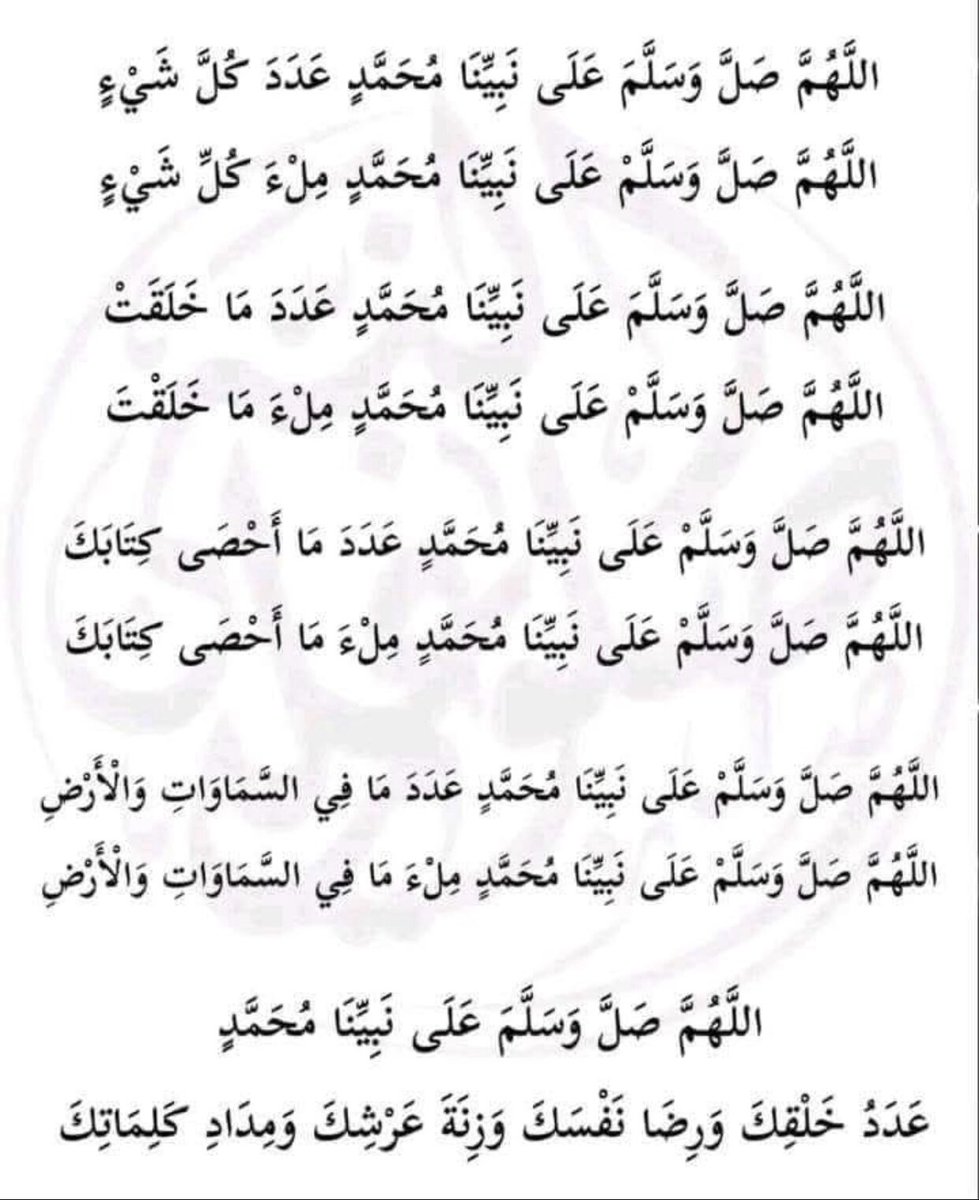 اللَّهُمَّ صَلَّ وَسَلَّمَ عَلَى نَبِيِّنَا مُحَمَّدٍ عَدَدَ كُلَّ شَيْءٍ
اللَّهُمَّ صَلَّ وَسَلَّمْ عَلَى نَبِيِّنَا مُحَمَّدٍ مِلْءَ كُلِّ شَيْءٍ
اللَّهُمَّ صَلَّ وَسَلَّمَ عَلَى نَبِيِّنَا مُحَمَّدٍ عَدَدَ مَا خَلَقَتْ
اللَّهُمَّ صَلَّ وَسَلَّمْ عَلَى نَبِيِّنَا مُحَمَّدٍ مِلْءَ مَا خَلَقْتَ
اللَّهُمَّ صَلَّ وَسَلَّمْ عَلَى نَبِيِّنَا مُحَمَّدٍ عَدَدَ مَا أَحْصَى كِتَابَكَ
اللَّهُمَّ صَلَّ وَسَلَّمْ عَلَى نَبِيِّنَا مُحَمَّدٍ مِلْءَ مَا أَحْصَى كِتَابَكَ
اللَّهُمَّ صَلَّ وَسَلَّمْ عَلَى نَبِيِّنَا مُحَمَّدٍ عَدَدَ مَا فِي السَّمَاوَاتِ وَالْأَرْضِ
اللَّهُمَّ صَلَّ وَسَلَّمْ عَلَى نَبِيِّنَا مُحَمَّدٍ مِلْءَ مَا فِي السَّمَاوَاتِ وَالْأَرْضِ
اللَّهُمَّ صَلَّ وَسَلَّمَ عَلَى نَبِيِّنَا مُحَمَّدٍ
عَدَدُ خَلْقِكَ وَرِضَا نَفْسَكَ وَزِنَةَ عَرْشِكَ وَمِدَادِ كَلِمَاتِكَ